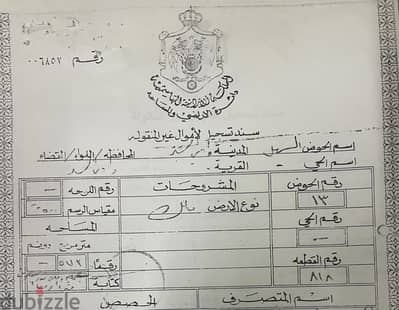 رقم ٠٠٦٨٥٧
المملكة الأردنية الهاشمية
دائرة الأراضي والمساحة
سند تسجيل لأموال غير المنقوله
اسم الحوض السهل المدينة المحافظه/اللواء/القضاء
اسم الحي - القرية -
رقم الحوض المشروحات رقم اللوحه -
١٣ نوع الارض مقياس الرسم
رقم الحي المساحه
- متر مربع دونم
رقم القطعه رقمًا ٥٧٦ -
٨١٨ كتابة
اسم المتصرف الحصص
dubizzle